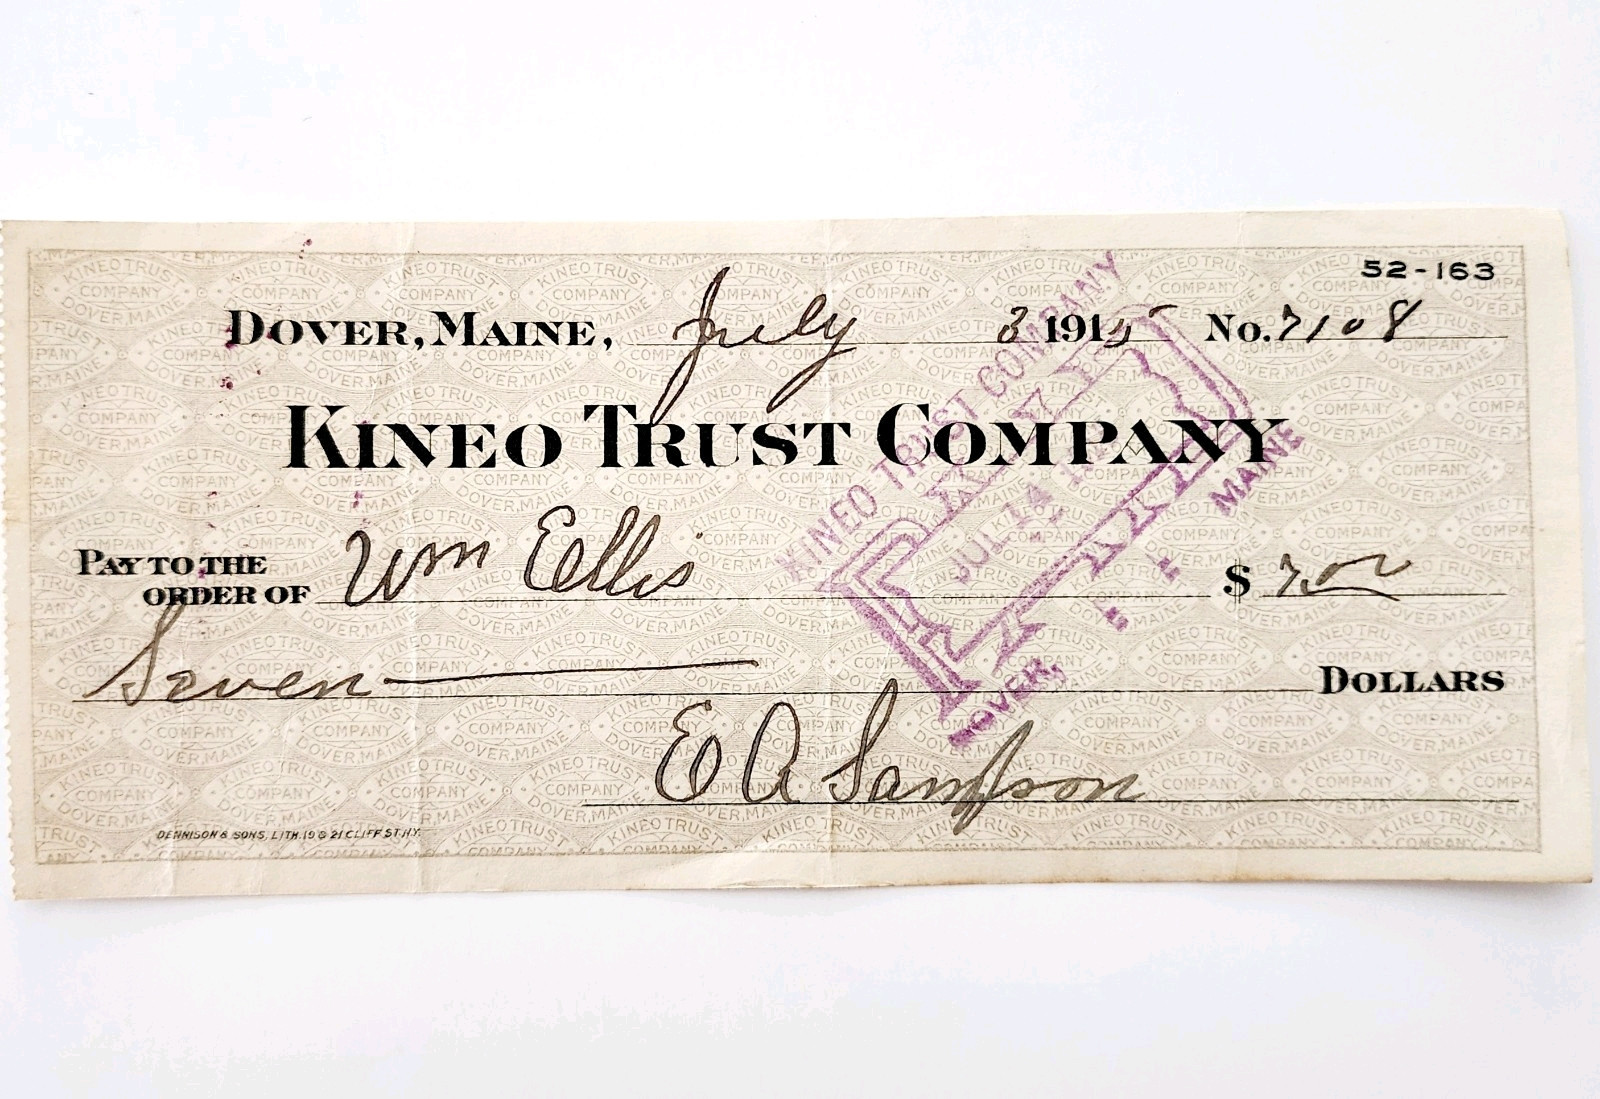 52-163
DOVER, MAINE, July 3 1915 No. 7108
KINEO TRUST COMPANY
PAY TO THE
ORDER OF Wm Ellis $ 7.00
Seven DOLLARS
E A Sampson
DENNISON & SONS, LITH. 19 & 21 CLIFF ST. N.Y.
KINEO TRUST COMPANY
PAID
JUL 14
DOVER, MAINE